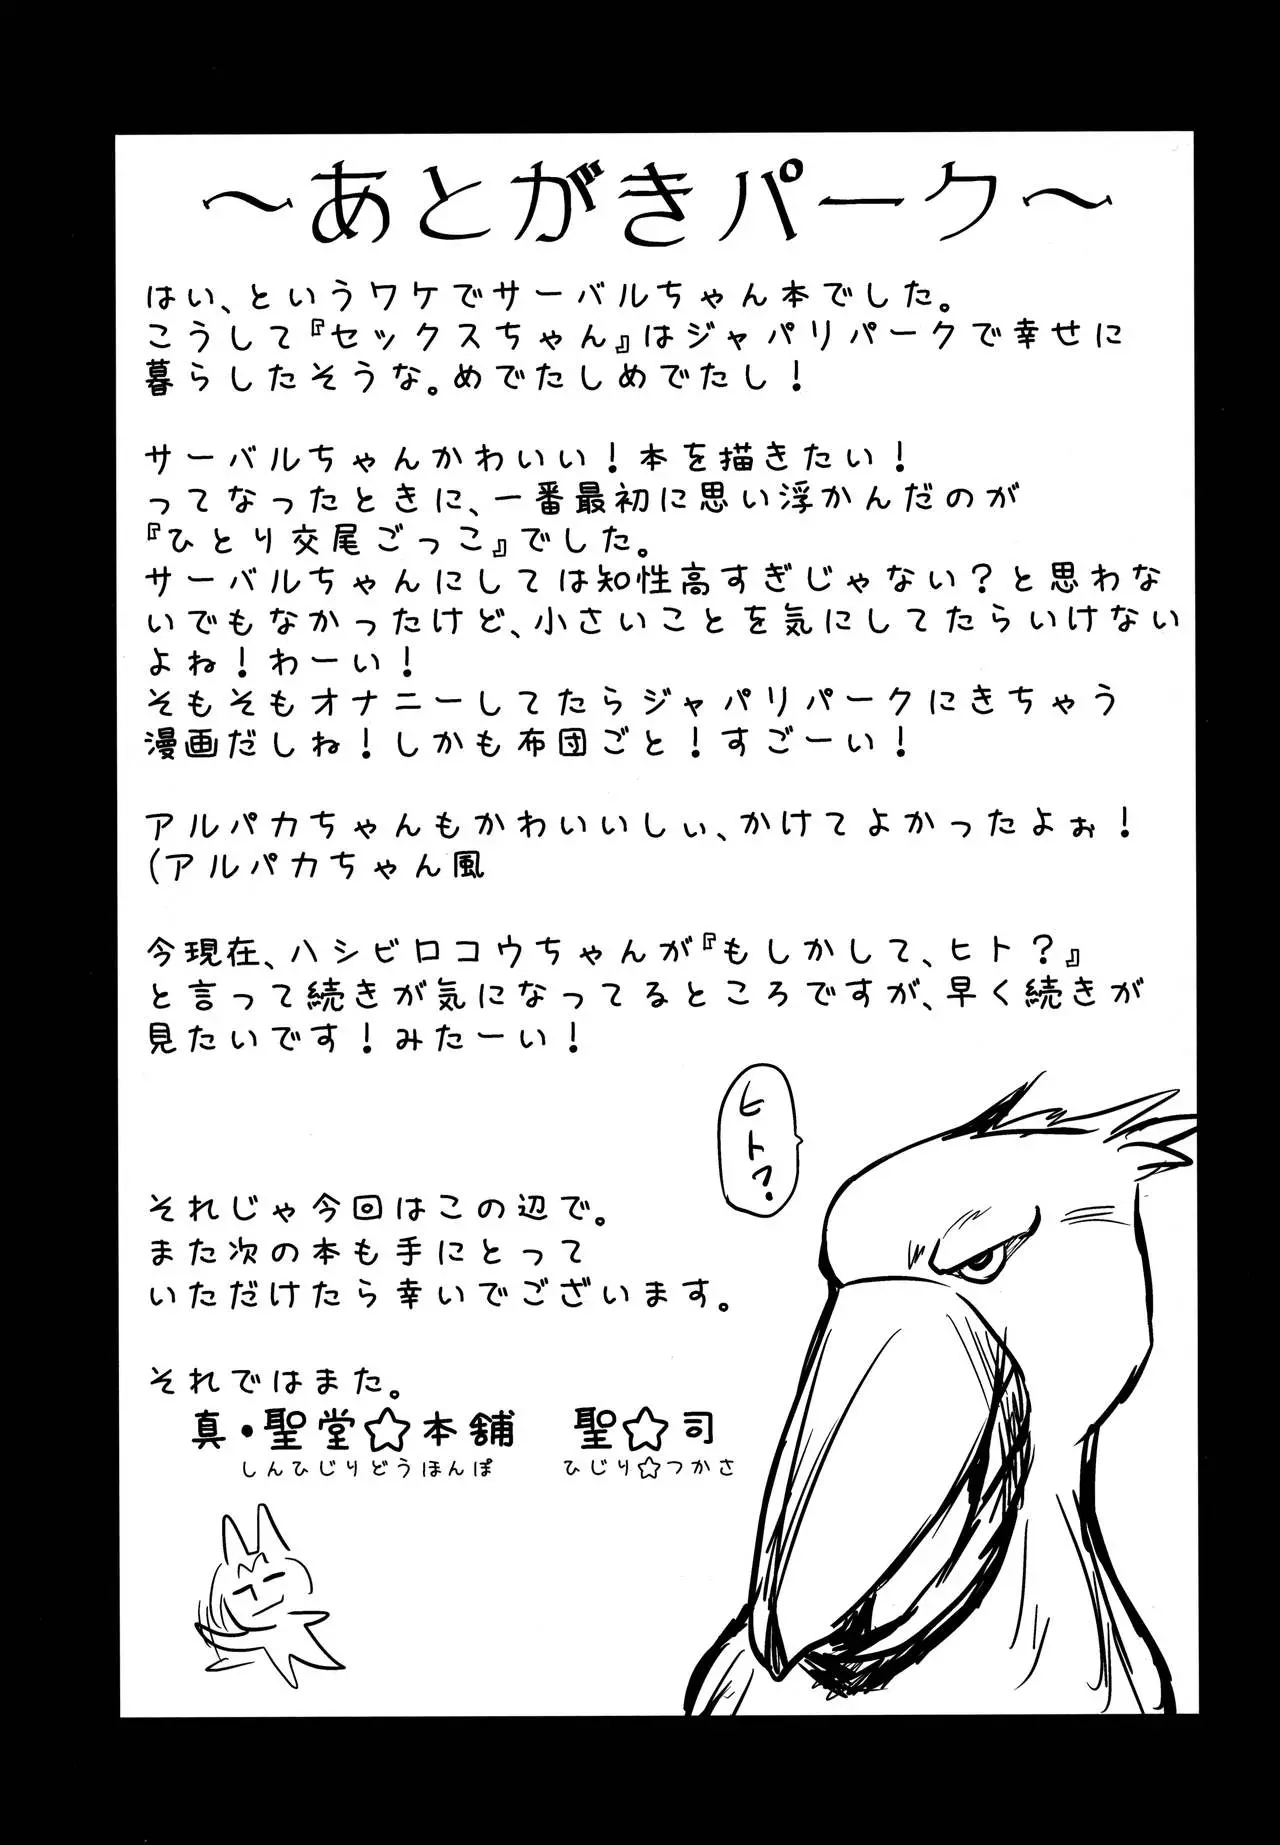 ～あとがきパーク～
はい、というワケでサーバルちゃん本でした。
こうして『セックスちゃん』はジャパリパークで幸せに
暮らしたそうな。めでたしめでたし！
サーバルちゃんかわいい！本を描きたい！
ってなったときに、一番最初に思い浮かんだのが
『ひとり交尾ごっこ』でした。
サーバルちゃんにしては知性高すぎじゃない？と思わな
いでもなかったけど、小さいことを気にしてたらいけない
よね！わーい！
そもそもオナニーしてたらジャパリパークにきちゃう
漫画だしね！しかも布団ごと！すごーい！
アルパカちゃんもかわいいしぃ、かけてよかったよぉ！
（アルパカちゃん風
今現在、ハシビロコウちゃんが『もしかして、ヒト？』
と言って続きが気になってるところですが、早く続きが
見たいです！みたーい！
ヒト？
それじゃ今回はこの辺で。
また次の本も手にとって
いただけたら幸いでございます。
それではまた。
真・聖堂☆本舗　聖☆司
しんひじりどうほんぽ　ひじり☆つかさ